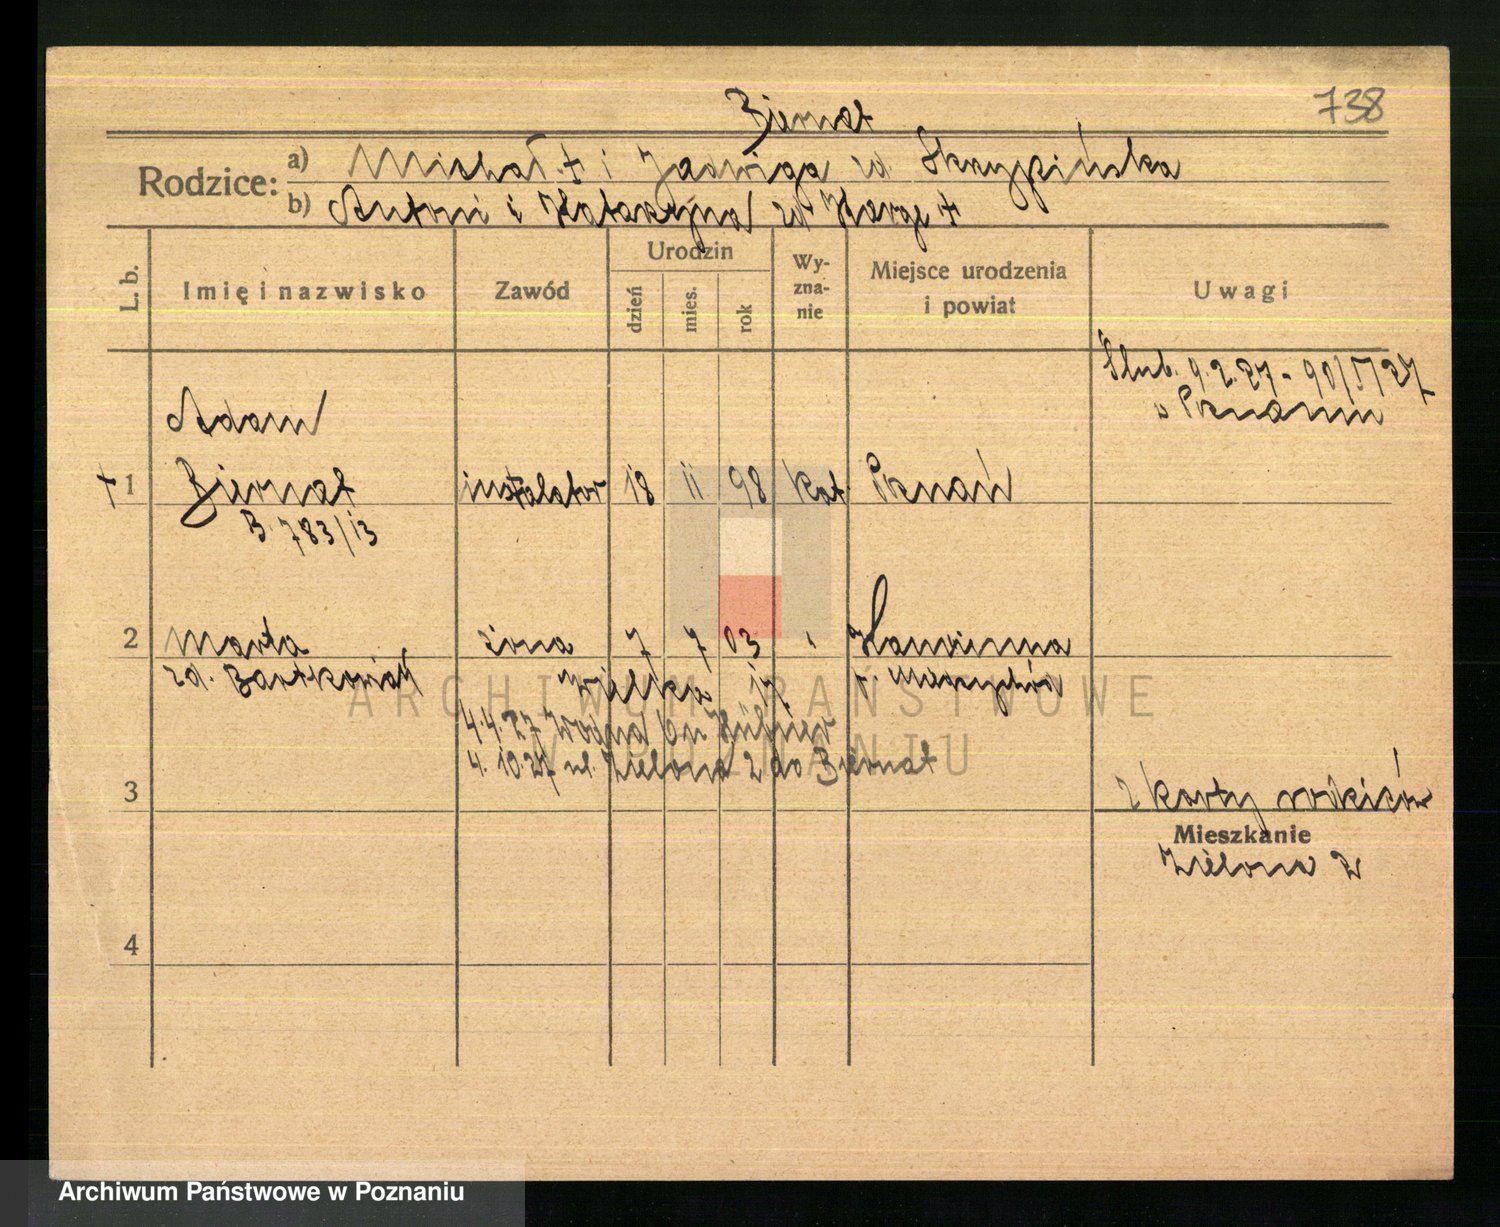 738
Biernat
Rodzice:
a) Michał † i Jadwiga zd. Skrzypińska
b) Antoni i Katarzyna zd.
L. b.
Imię i nazwisko
Zawód
Urodzin
dzień
mies.
rok
Wy-
zna-
nie
Miejsce urodzenia
i powiat
Uwagi
Ślub. 9.2.27 -
w Poznaniu
Adam
† 1 Biernat instalator 18 11 98 kat. Poznań
B. 783/13
2 Marta żona 7 7 03 "
zd. Bartkowiak
Wielka 17
4.4.27 Wodna
4.10.27 ul. Zielona 2 do Biernat
3
z karty rodziców
Mieszkanie
Zielona 2
4
ARCHIWUM PAŃSTWOWE
W POZNANIU
Archiwum Państwowe w Poznaniu